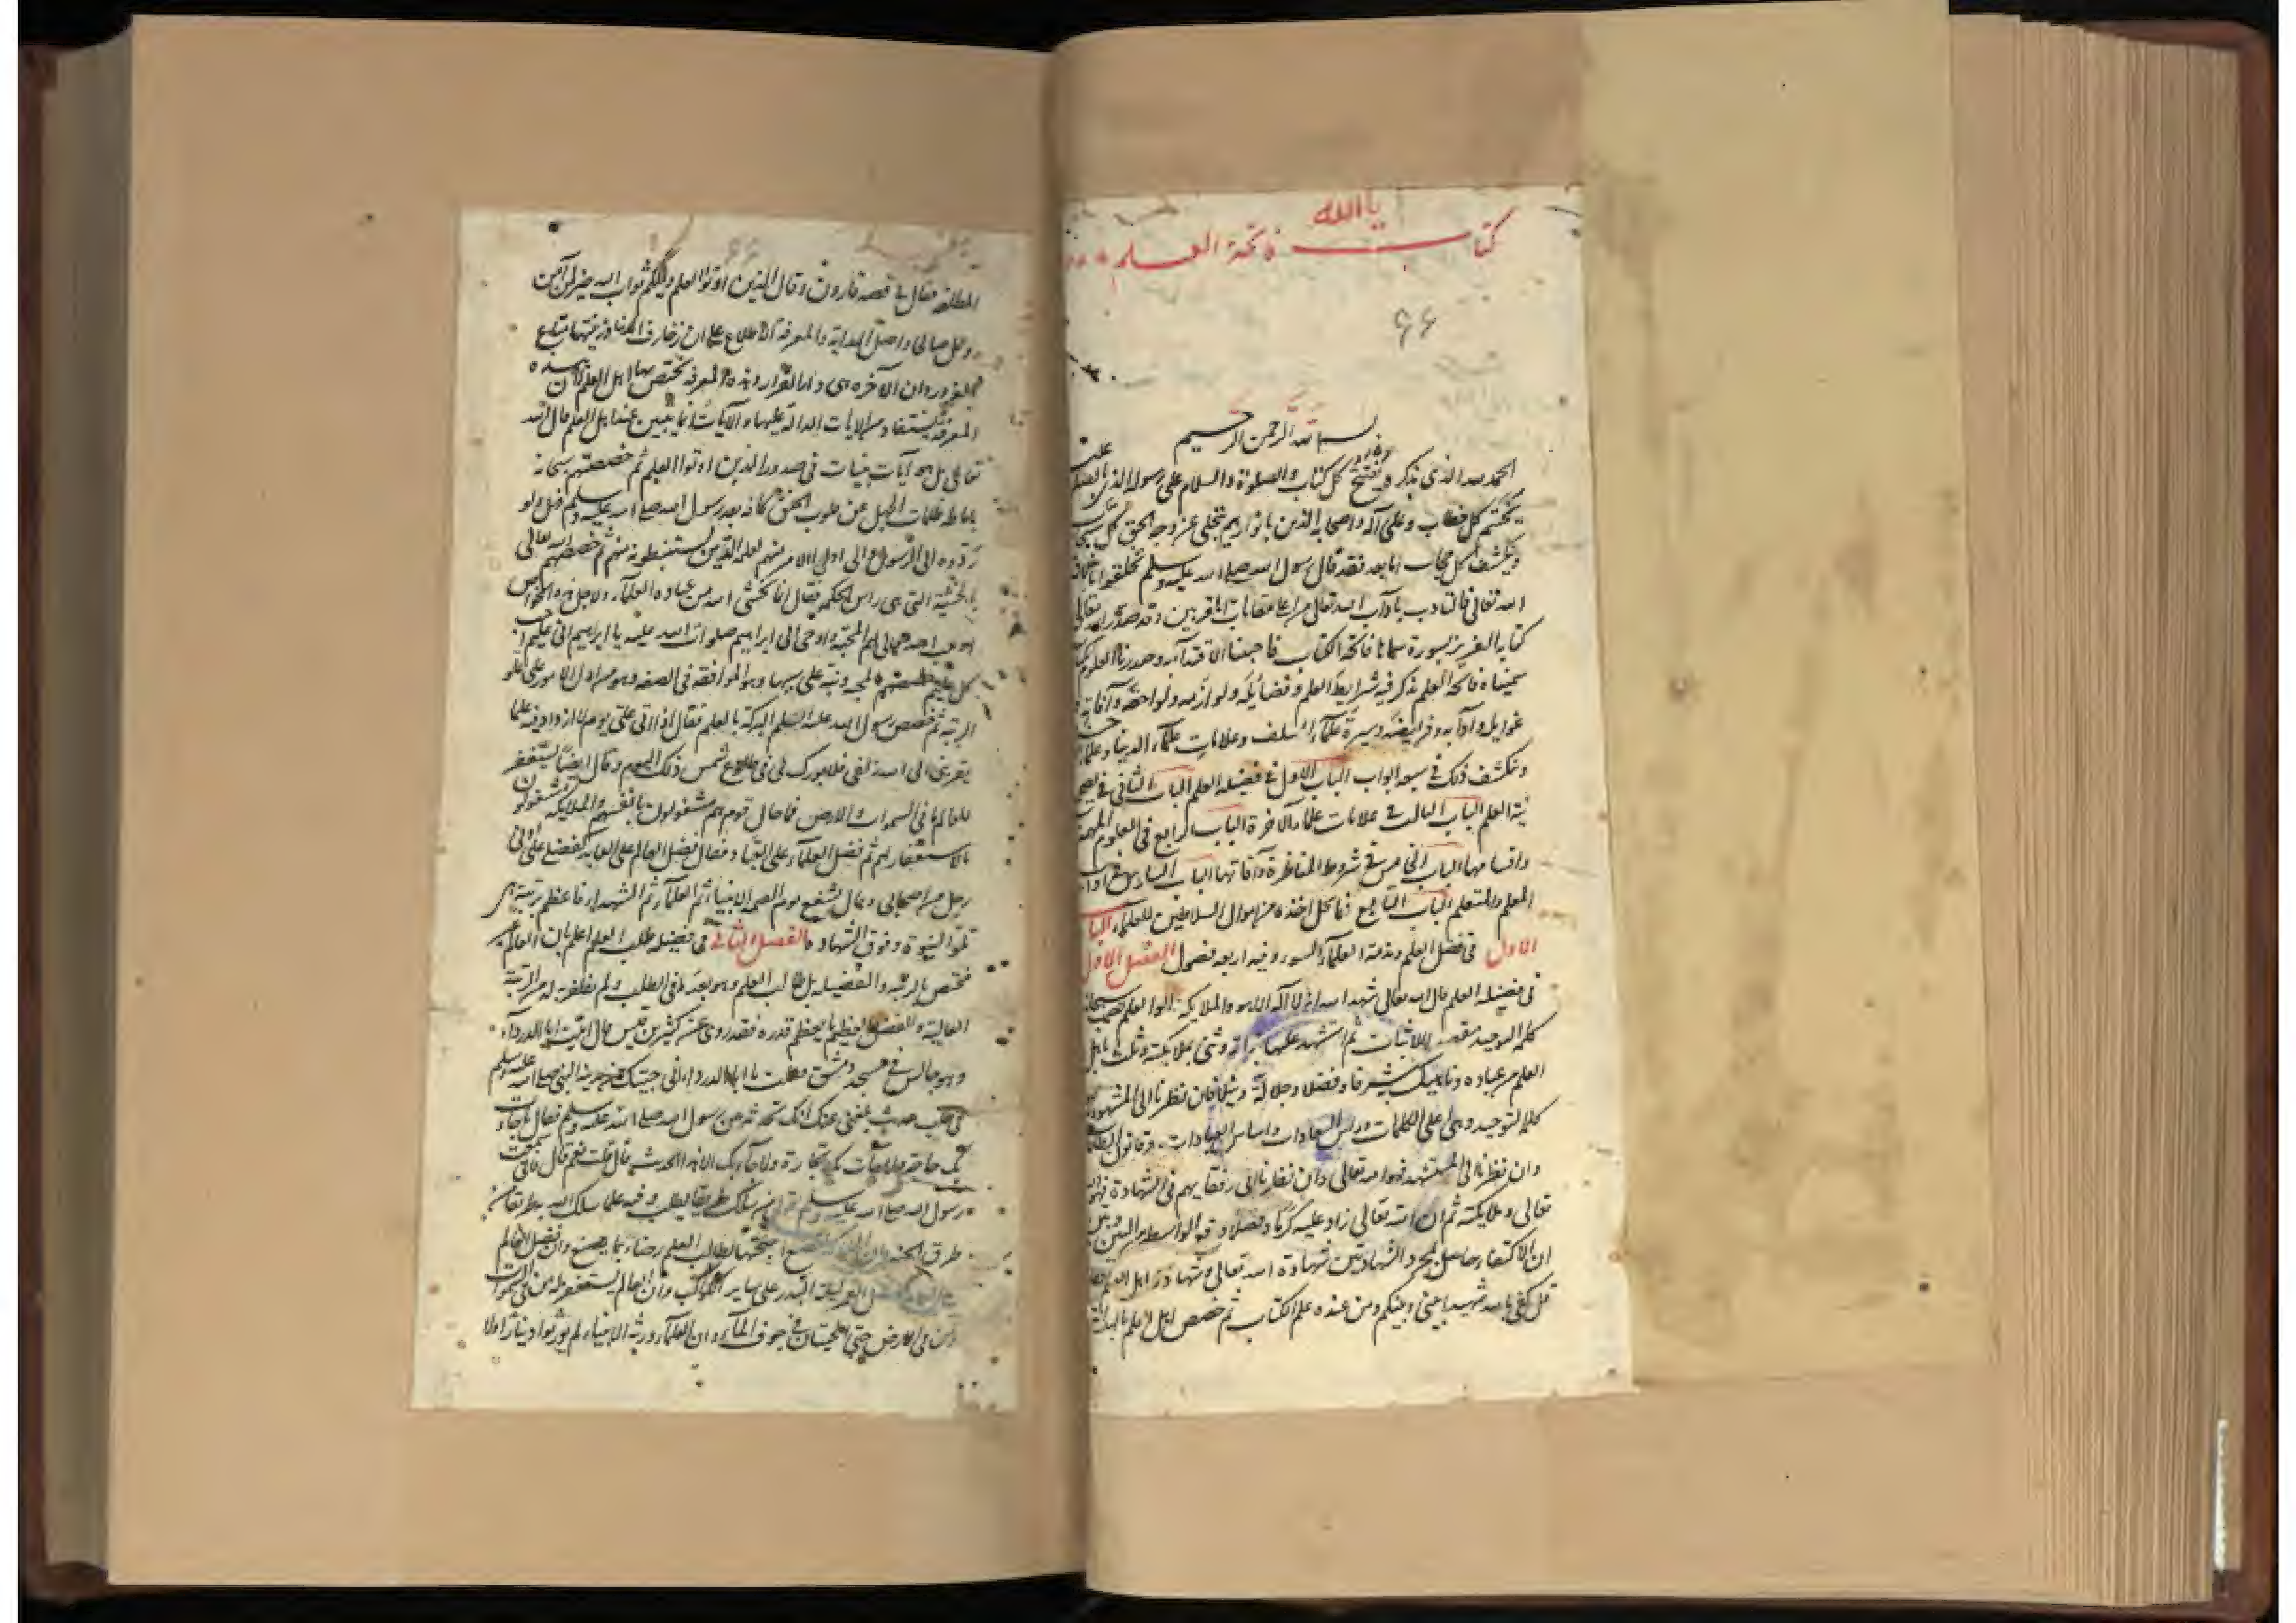 يا الله
كتاب فاتحة العلم
٦٦
بسم الله الرحمن الرحيم
الحمد لله الذي بذكره يفتتح كل كتاب والصلوة والسلام على رسوله الذي بالصلوة عليه
يختتم كل خطاب وعلى آله واصحابه الذين بانوارهم يتجلى عن وجه الحق كل
وينكشف كل حجاب اما بعد فقد قال رسول الله صلى الله عليه وسلم تخلقوا باخلاق
الله تعالى فالتادب بآداب الله تعالى من اعلى مقامات المقربين وقد صدر الله تعالى
كتابه العزيز بسورة سماها فاتحة الكتاب فاحببنا الاقتداء به وصدرنا العلوم بكتاب
سميناه فاتحة العلم نذكر فيه شرايط العلم وفضايله ولوازمه ولواحقه وآفاته
غوايله وآدابه وفرايضه وسيرة علماء السلف وعلامات علماء الدنيا وعلماء
وينكشف ذلك في سبعة ابواب الباب الاول في فضيلة العلم الباب الثاني في تصحيح
نية العلم الباب الثالث في علامات علماء الآخرة الباب الرابع في العلوم المهمة
واقسامها الباب الخامس في شروط المناظرة وآفاتها الباب السادس في آداب
المعلم والمتعلم الباب السابع فيما يحل اخذه من اموال السلاطين للعلماء الباب
الاول في فضل العلم ومذمة العلماء السوء وفيه اربعة فصول الفصل الاول
في فضيلة العلم قال الله تعالى شهد الله انه لا اله الا هو والملايكة واولوا العلم سبحانه
كلمة التوحيد للاثبات ثم استشهد عليها بذاته وثنى بملايكته وثلث باهل
العلم من عباده وناهيك به شرفا وفضلا وجلالة ونبلا فان نظرنا الى المشهود به
كلمة التوحيد وهي اعلى الكلمات وراس السعادات واساس العبادات وقانون الطاعات
وان نظرنا الى المستشهد فهو الله تعالى وان نظرنا الى رفقايهم في الشهادة فهو الله
تعالى وملايكته ثم ان الله تعالى زاد عليه كرما وفضلا ورفع الواسطة من البين وبين
ان الاكتفاء حاصل بمجرد الشهادتين شهادة الله تعالى وشهادة اهل العلم فقال
قل كفى بالله شهيدا بيني وبينكم ومن عنده علم الكتاب ثم خصص اهل العلم بالهداية
المطلقة فقال في قصة قارون وقال الذين اوتوا العلم ويلكم ثواب الله خير لمن آمن
وعمل صالحا واصل الهداية والمعرفة الاطلاع على ان زخارف الدنيا وزينتها متاع
الغرور وان الآخرة هي دار القرار وهذه المعرفة يختص بها اهل العلم لان هذه
المعرفة يستفاد من الايات الدالة عليها والآيات انما يتبين عند اهل العلم قال الله
تعالى بل هو آيات بينات في صدور الذين اوتوا العلم ثم خصصهم سبحانه
باماطة ظلمات الجهل عن قلوب الخلق كافة بعد رسول الله صلى الله عليه وسلم فقال ولو
ردوه الى الرسول والى اولي الامر منهم لعلمه الذين يستنبطونه منهم ثم خصصهم الله تعالى
بالخشية التي هي راس الحكم فقال انما يخشى الله من عباده العلماء ولاجل هذه الخواص
اوجب الله تعالى لهم المحبة واوحى الى ابراهيم صلوات الله عليه يا ابراهيم اني عليم احب
كل عليم خصصهم بالمحبة ونبه على سببها وهو الموافقة في الصفة وهو من ادل الامور على علو
الرتبة ثم خصص رسول الله عليه السلم البركة بالعلم فقال اذا اتى علي يوم لا ازداد فيه علما
يقربني الى الله زلفى فلا بورك لي في طلوع شمس ذلك اليوم وقال ايضا يستغفر
للعالم ما في السموات والارض فما حال قوم هم مشغولون بانفسهم والملايكة مشغولون
بالاستغفار لهم ثم فضل العلماء على العباد فقال فضل العالم على العابد كفضلي على ادنى
رجل من اصحابي وقال يشفع يوم القيمة الانبياء ثم العلماء ثم الشهداء فاعظم بمرتبة هي
تلو النبوة وفوق الشهادة الفصل الثاني في فضيلة طلب العلم اعلم بان العالم غير
مختص بالرتبة والفضيلة بل طالب العلم وهو بعد في الطلب ولم يظفر به له من الرتبة
العالية والفضل العظيم ما يعظم قدره فقد روي عن كثير بن قيس قال اتيت ابا الدرداء
وهو جالس في مسجد دمشق فقلت يا ابا الدرداء اني جيتك من مدينة النبي صلى الله عليه وسلم
في طلب حديث بلغني عنك انك تحدثه من رسول الله صلى الله عليه وسلم فقال ما جاءت
بك حاجة ولا جاءت بك تجارة ولا جاء بك الا هذا الحديث قال قلت نعم قال فاني سمعت
رسول الله صلى الله عليه وسلم يقول من سلك طريقا يطلب فيه علما سلك الله به طريقا من
طرق الجنة وان الملايكة لتضع اجنحتها لطالب العلم رضاء بما يصنع وان فضل العالم
على العابد كفضل القمر ليلة البدر على ساير الكواكب وان العالم يستغفر له من في السموات
ومن في الارض حتى الحيتان في جوف الماء وان العلماء ورثة الانبياء لم يورثوا دينارا ولا